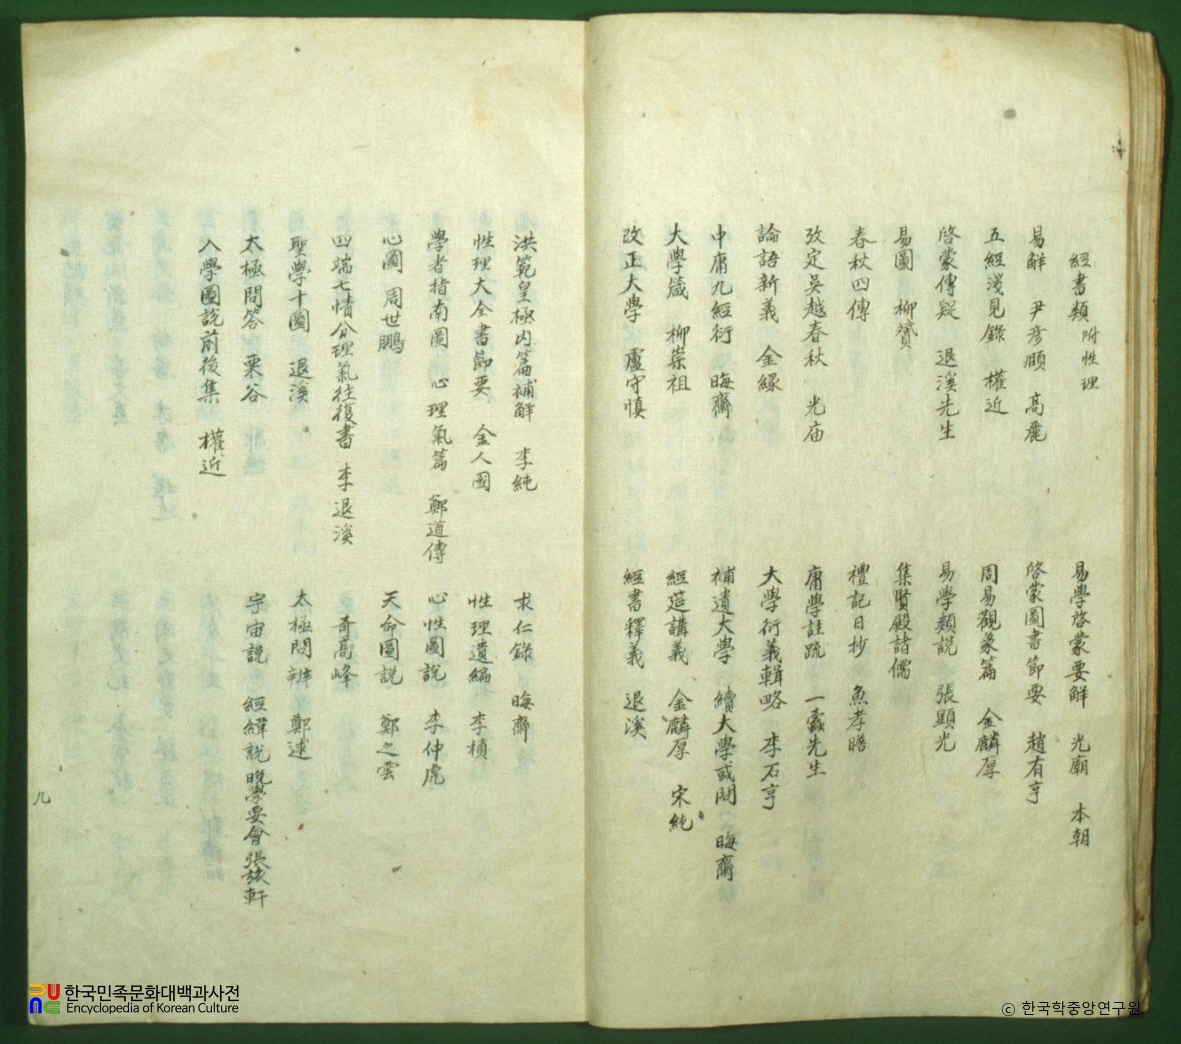 經書類 附性理
易學啓蒙要解 光廟 本朝
易解 尹彦頤 高麗
啓蒙圖書節要 趙有亨
五經淺見錄 權近
周易觀象篇 金麟厚
啓蒙傳疑 退溪先生
易學類說 張顯光
易圖 柳贇
集賢殿諸儒
春秋四傳
禮記日抄 魚孝瞻
攷定吳越春秋 光庙
庸學註䟽 一蠹先生
論語新義 金緣
大學衍義輯略 李石亨
中庸九經衍 晦齋
補遺大學 續大學或問 晦齋
大學箴 柳崇祖
經筵講義 金麟厚 宋純
改正大學 盧守愼
經書釋義 退溪
洪範皇極內篇補解 李純
求仁錄 晦齋
性理大全書節要 金人國
性理遺編 李楨
學者指南圖 心理氣篇 鄭道傳
心性圖說 李仲虎
心圖 周世鵬
天命圖說 鄭之雲
四端七情分理氣往復書 李退溪
奇高峰
聖學十圖 退溪
太極問辨 鄭逑
太極問答 栗谷
宇宙說 經緯說 晩學要會 張旅軒
入學圖說前後集 權近
九
한국민족문화대백과사전
Encyclopedia of Korean Culture
ⓒ 한국학중앙연구원